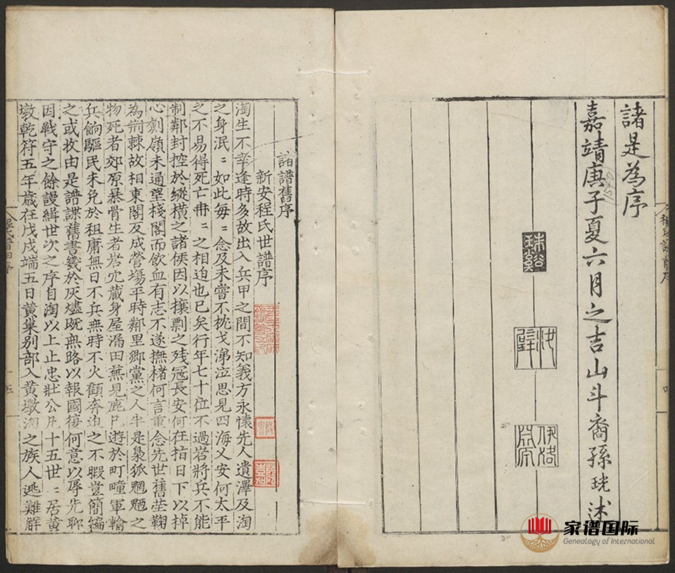 諸是為序
嘉靖庚子夏六月之吉山斗裔孫珖述
珠谿
諸譜舊序
新安程氏世譜序
淘生不辜逢時多故出入兵甲之間不知義方永懷先人遺澤及淘
之身泯〻如此每〻念及未嘗不枕戈涕泣思見四海乂安何太平
之不易得死亡冊〻之相迫也已矣行年七十位不過岩將兵不能
制鄰封控於縱橫之諸侯因以攘剽之殘寇長安何在指日下以掉
心劍嶺未通望棧閣而飲血有志不遂撫楮何言重念先世舊塋鞠
為荊棘故相東閣反成營場平時鄰里鄉黨之人半是梟狐魍魎之
物死者郊原暴骨生者岩穴藏身屋湯田蕪見鹿豕遊於町疃軍輸
兵餉驅民未免於租庸無日不兵無時不火顛奔迸之不暇豈簡編
之或收由是譜諜舊書幾於灰燼既無路以報國復何意以辱先聊
因戰守之餘謾緝世次之序自淘以上止忠壯公凡十五世〻居黃
墩乾符五年歲在戊戌端五日黃巢別部入黃墩淘之族人逃難解
家谱国际
Genealogy of International